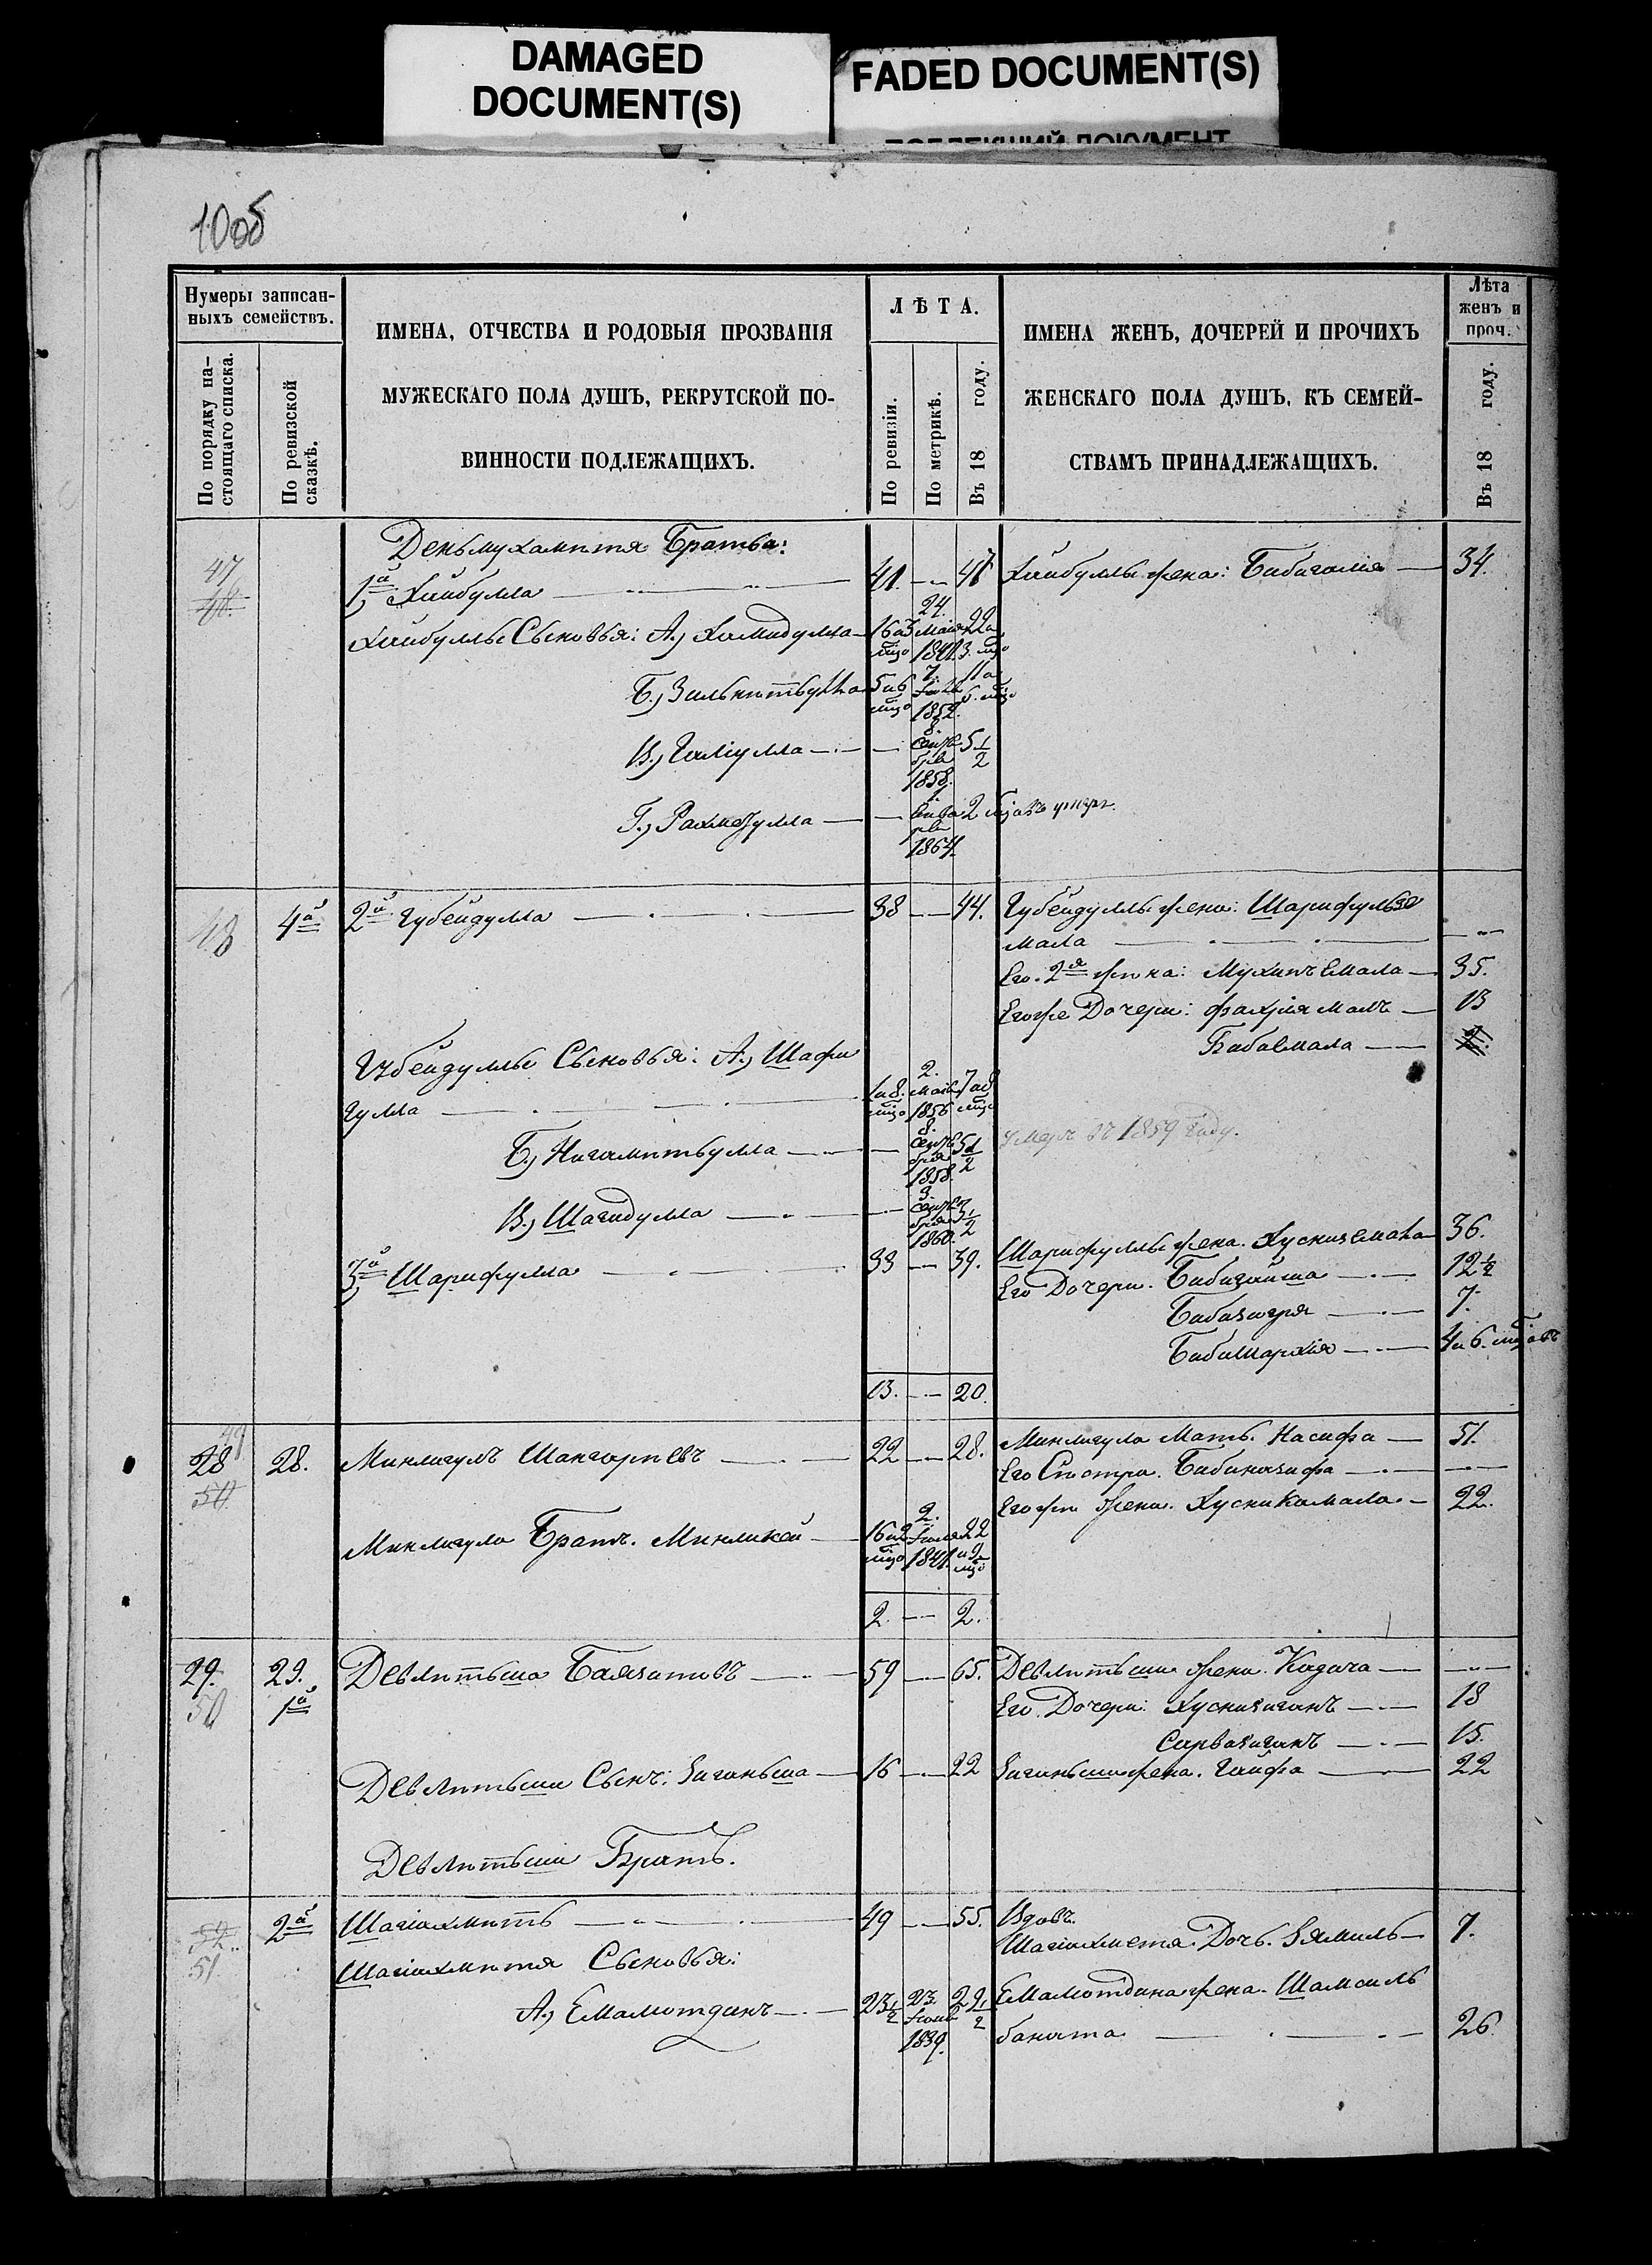 DAMAGED
DOCUMENT(S)
FADED DOCUMENT(S)
10об
Нумеры записан-
ныхъ семействъ.
По порядку на-
стоящаго списка.
По ревизской
сказкѣ.
ИМЕНА, ОТЧЕСТВА И РОДОВЫЯ ПРОЗВАНІЯ
МУЖЕСКАГО ПОЛА ДУШЪ, РЕКРУТСКОЙ ПО-
ВИННОСТИ ПОДЛЕЖАЩИХЪ.
ЛѢТА.
По ревизіи.
По метрикѣ.
Въ 18 году.
ИМЕНА ЖЕНЪ, ДОЧЕРЕЙ И ПРОЧИХЪ
ЖЕНСКАГО ПОЛА ДУШЪ, КЪ СЕМЕЙ-
СТВАМЪ ПРИНАДЛЕЖАЩИХЪ.
Лѣта
женъ и
проч.
Въ 18 году.
Деньмухаметя Братья:
47 48. 1й Хайбулла — 41. — 47 Хайбуллы жена: Бибигалія — 34.
Хайбуллы Сыновья: А., Хамидулла — 16 а 3 мцо 24. Маія 1841. 22 а 3. мцо
Б., Зилькитьулла 5 а 6 мцо 7. 1852. 11 а 6. мцо
В., Галіулла — 8. Сентября 1858. 5 1/2
Г., Рахметулла — 1. Января 1864. 2 мцовъ умеръ.
48 4й 2й Губейдулла — 38 — 44. Губейдуллы жена: Шарифульзе
мала —
Его. 2я жена: Мухипъ Емала — 35.
Егоже Дочери: Фахріямалъ — 13
Бибаемала — 2.
Губейдуллы Сыновья: А., Шафи
гулла — 1 а 8. мцо 2. Маія 1856 7 а 8 мцо
умеръ въ 1859 году.
Б., Нигаметьулла — 8. Сентября 1858. 5 1/2
В., Шагидулла — 3. Сентября 1860. 3 1/2
3й Шарифулла — 33 — 39. Шарифуллы жена. Хусниземала 36.
Его Дочери. Бибигайша — 12 1/2
Бибазигря — 7.
Бибишархія — 4 а 6. мцовъ
13. — 20.
49 28 50 28. Минлигулъ Шангареевъ — 22 — 28. Минлигула Мать. Насифа — 51.
Его Сестра. Бибиназифа —
Егоже Жена. Хусникамала — 22.
Минлигула Братъ. Минликей — 16 а 2 мцо 2. 1841. 22 а 9 мцо
2. — 2.
29. 50 29. 1й Девлетьша Баязитовъ — 59 — 65. Девлетьши Жена. Кадича —
Его. Дочери: Хуснизиганъ — 18
Сарвазиганъ — 15.
Девлетьши Сынъ: Зиганьша — 16 — 22 Зиганьши жена. Гайфа — 22
Девлетьши Братъ.
52. 51. 2й Шагіахметь — 49 — 55. Вдовъ.
Шагіахметя. Дочь. Зямиль — 7.
Шагіахметя Сыновья:
А., Емалютдинъ — 23 1/2 23. 1839. 29 1/2 Емалютдина жена. Шамсиль
баната — 26.